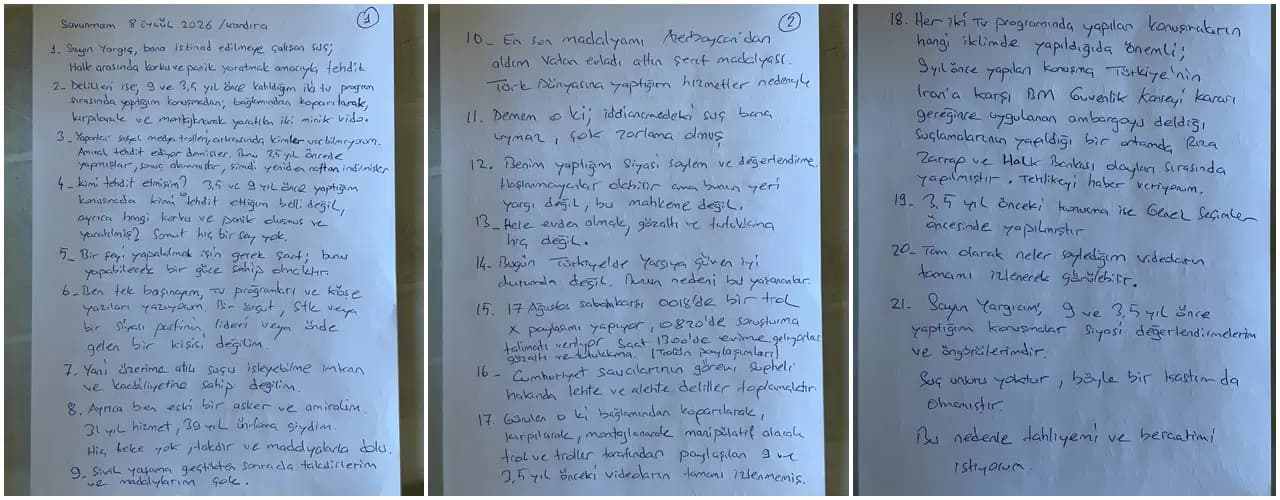 Savunmam 8 EYLÜL 2026 / Kandıra
1
1. Sayın Yargıç, bana istinad edilmeye çalışan suç;
Halk arasında korku ve panik yaratmak amacıyla tehdit
2- Delilleri ise, 9 ve 3,5 yıl önce katıldığım iki tv program
sırasında yaptığım konuşmadan, bağlamından koparılarak,
kırpılarak ve montajlanarak yaratılan iki minik vido.
3- Yapanlar sosyal medya trolleri, arkasında kimler var bilmiyorum.
Amiral tehdit ediyor demişler. Bunu 3,5 yıl öncede
yapmışlar, sonuç alamamışlar, şimdi yeniden raftan indirmişler
4- Kimi tehdit etmişim? 3,5 ve 9 yıl önce yaptığım
konuşmada kimi tehdit ettiğim belli değil,
ayrıca hangi korku ve panik oluşmuş ve
yaratılmış? Somut hiç bir şey yok.
5- Bir şeyi yapabilmek için gerek şart; bunu
yapabilecek bir güce sahip olmaktır.
6- Ben tek başınayım, tv programları ve köşe
yazıları yazıyorum. Bir örgüt, STK veya
bir siyasi partinin, lideri veya önde
gelen bir kişisi değilim.
7. Yani üzerime atılı suçu işleyebilme imkan
ve kabiliyetine sahip değilim.
8. Ayrıca ben eski bir asker ve amiralim.
31 yıl hizmet, 39 yıl üniforma giydim.
Hiç leke yok, takdir ve madalyalarla dolu.
9. Sivil yaşama geçtikten sonrada takdirlerim
ve madalyalarım çok.
2
10- En son madalyamı Azerbaycan'dan
aldım Vatan evladı altın şeref madalyası.
Türk Dünyasına yaptığım hizmetler nedeniyle
11. Demem o ki; iddianamedeki suç bana
uymaz, çok zorlama olmuş
12. Benim yaptığım siyasi söylem ve değerlendirme.
Hoşlanmayanlar olabilir ama bunun yeri
yargı değil, bu mahkeme değil.
13- Hele evden almak, gözaltı ve tutuklama
hiç değil.
14- Bugün Türkiye'de Yargıya güven iyi
durumda değil. Bunun nedeni bu yaşananlar.
15. 17 Ağustos sabaha karşı 0018'de bir trol
X paylaşımı yapıyor, 0820'de soruşturma
talimatı veriliyor Saat 1300'de evime geliyorlar
gözaltı ve tutuklama. (Trolün paylaşımları)
16- Cumhuriyet savcılarının görevi şüpheli
hakında lehte ve alehte deliller toplamaktır.
17. Görülen o ki bağlamından koparılarak,
kırpılarak, montajlanarak manipülatif olarak
trol ve troller tarafından paylaşılan 9 ve
3,5 yıl önceki videoların tamamı izlenmemiş.
18. Her iki Tv programında yapılan konuşmaların
hangi iklimde yapıldığıda önemli;
9 yıl önce yapılan konuşma Türkiye'nin
İran'a karşı BM Güvenlik Konseyi kararı
gereğince uygulanan ambargoyu deldiği
suçlamalarının yapıldığı bir ortamda, Rıza
Zarrap ve Halk Bankası olayları sırasında
yapılmıştır. Tehlikeyi haber veriyorum.
19. 3,5 yıl önceki konuşma ise Genel Seçimler
öncesinde yapılmıştır
20- Tam olarak neler söylediğim videoların
tamamı izlenerek görülebilir.
21. Sayın Yargıcım, 9 ve 3,5 yıl önce
yaptığım konuşmalar siyasi değerlendirmelerim
ve öngörülerimdir.
Suç unsuru yoktur, böyle bir kastım da
olmamıştır.
Bu nedenle tahliyemi ve beraatimi
istiyorum.